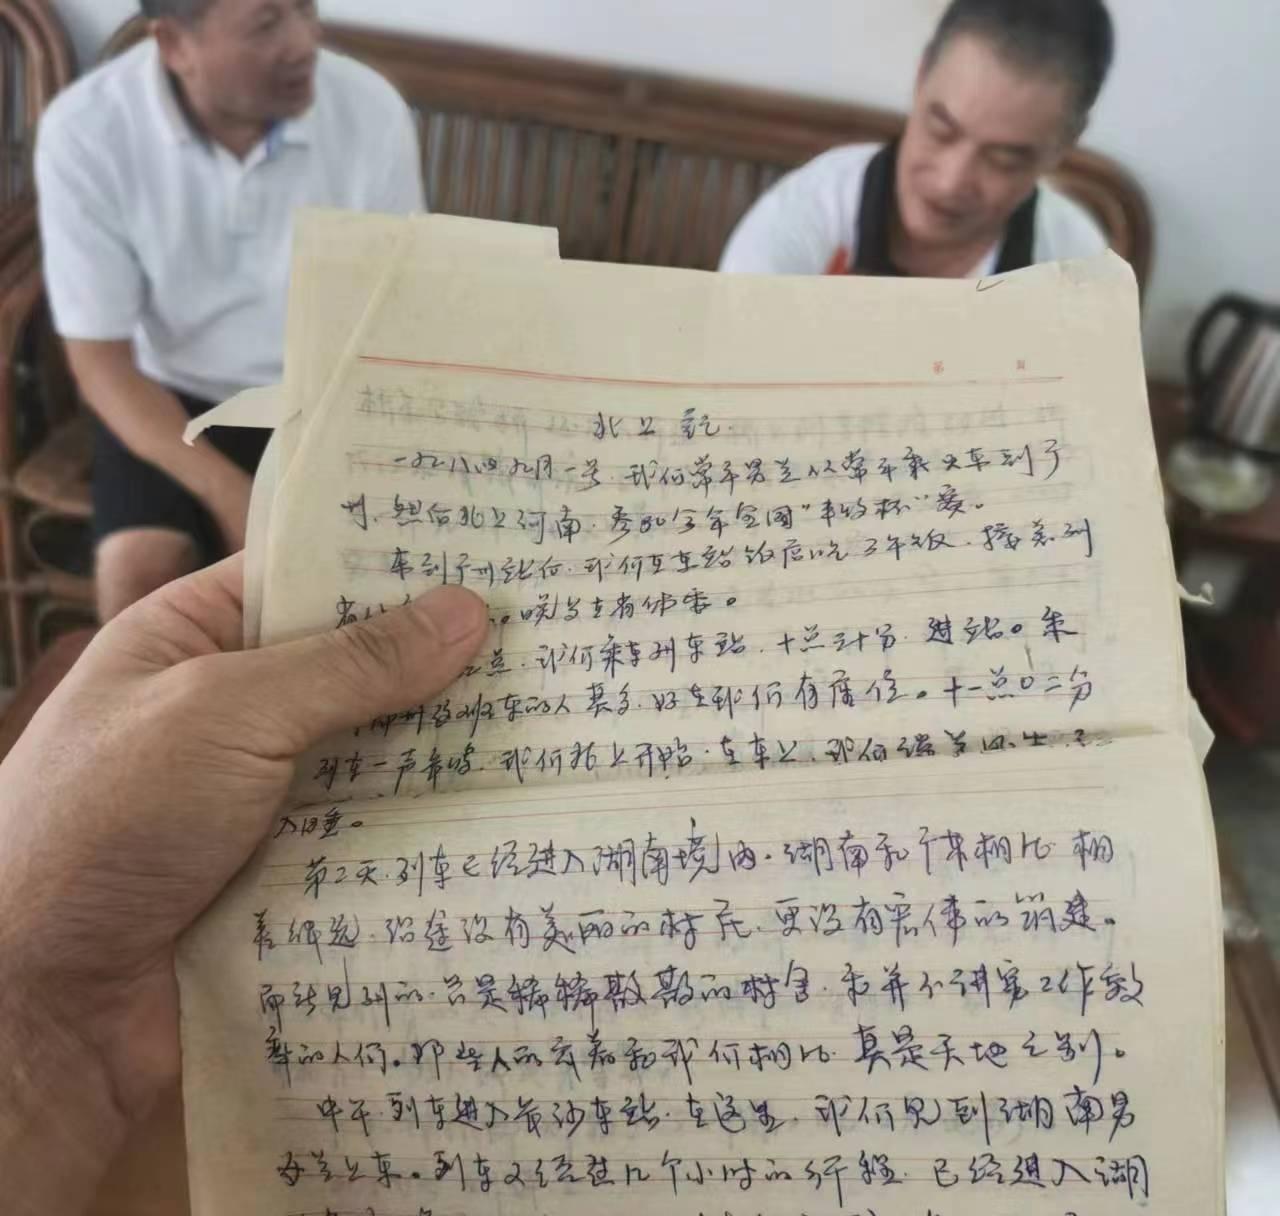 第 页
北上记
一九八四九月一号，我们常平男兰从常平乘火车到广
州，然后北上河南，参加今年全国“丰收杯”赛。
车到广州站后，我们在车站饭店吃了午饭，接着到
省体
点，我们乘车到车站，十点三十分，进站。乘
的人甚多，好在我们有座位。十一点0二分
列车一声长鸣，我们北上开始，在车上，我们
入睡。
第二天，列车已经进入湖南境内，湖南和广东相比，相
差很远，沿途没有美丽的村庄，更没有宏伟的建。
而能见到的，只是稀稀散散的村舍，和并不讲究工作效
率的人们。那些人的衣着和我们相比，真是天地之别。
中午，列车进入长沙车站，在这里，我们见到湖南男
女兰上车。列车又经过几个小时的行程，已经进入湖